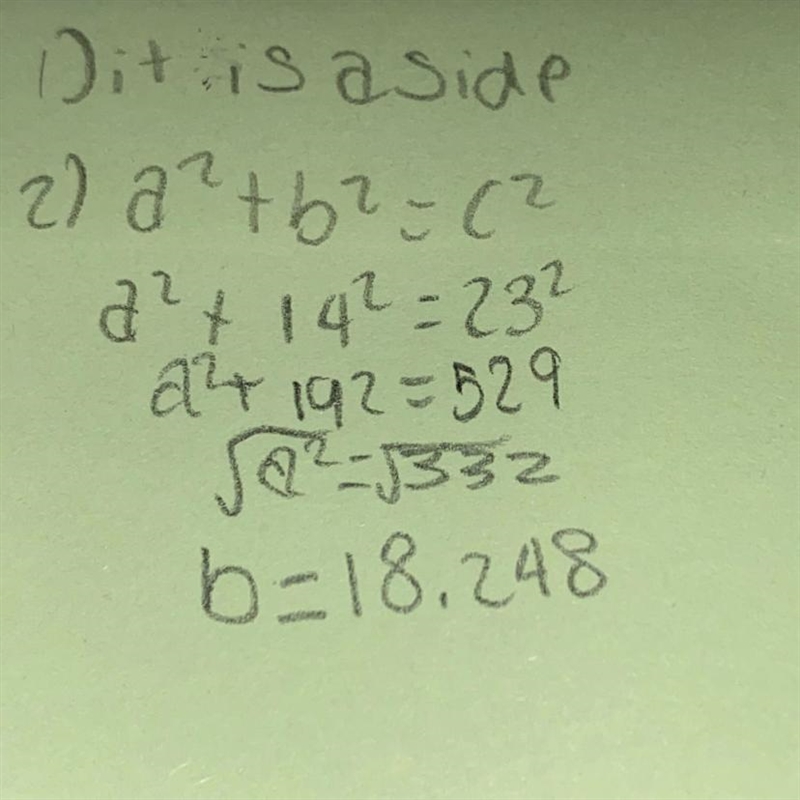 1) it is a side
2) a² + b² = c²
a² + 14² = 23²
a² + 192 = 529
√a² = √332
b = 18.248